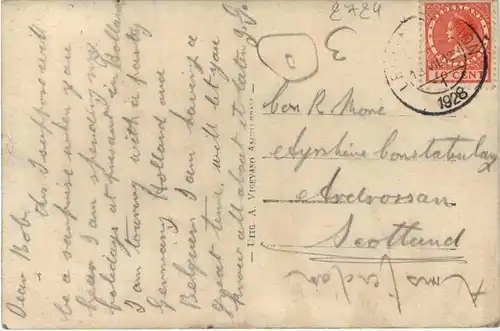 2724
3
Dear Bob,
this I suppose will
be a surprise when you
hear I am spending my
holidays at present in Holland
I am touring with a party
Germany Holland and
Belgium I am having a
great time, will let you
know all about it later
— UITG. A. VIGEVANO AMSTERDAM —
10 CENT
1928
Con R. More
Ayrshire Constabulary
Ardrossan
Scotland
Amsterdam